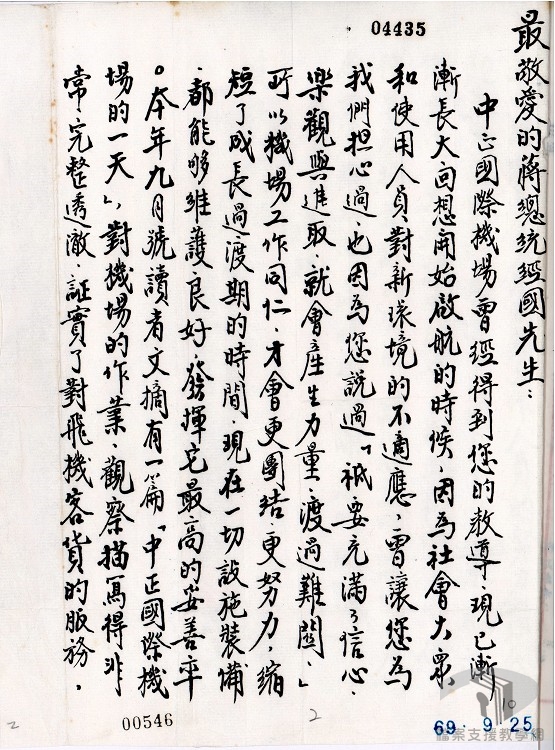 04435
最敬愛的蔣總統經國先生：
中正國際機場曾經得到您的教導、現已漸
漸長大回想開始啟航的時候、因為社會大眾、
和使用人員、對新環境的不適應、曾讓您為
我們担心過、也因為您說過「祇要充滿了信心、
樂觀與進取、就會產生力量、渡過難關、」
所以機場工作同仁、才會更團結、更努力、縮
短了成長過渡期的時間、現在一切設施裝備
、都能够維護良好、發揮它最高的妥善率
。本年九月號讀者文摘有一篇「中正國際機
場的一天」、對機場的作業、觀察描寫得非
常完整透澈、証實了對飛機客貨的服務、
10
69. 9. 25
2
00546
2
檔案支援教學網